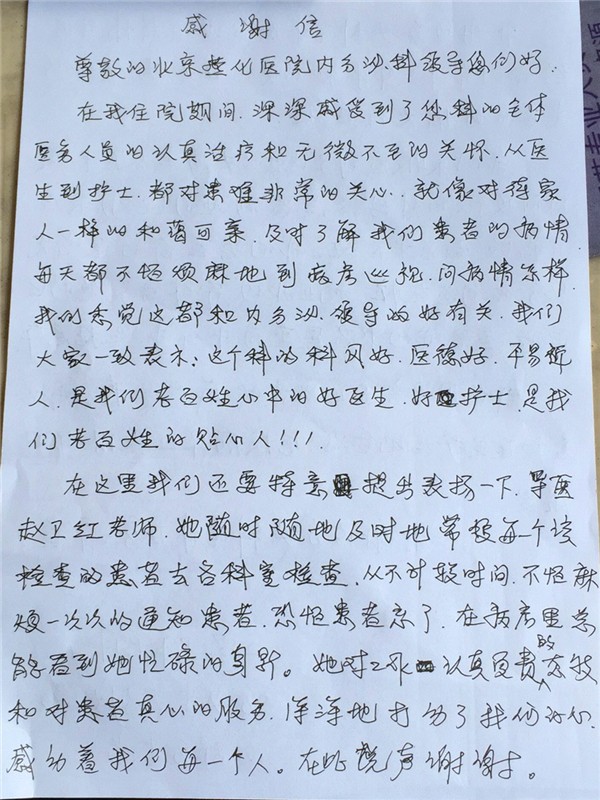 感谢信
尊敬的北京燕化医院内分泌科领导您们好.
在我住院期间.深深感受到了您科的全体
医务人员的认真治疗和无微不至的关怀.从医
生到护士.都对患难非常的关心.就像对待家
人一样的和蔼可亲.及时了解我们患者的病情
每天都不怕烦麻地到病房巡视.问病情怎样.
我们感觉这都和内分泌.领导的好有关.我们
大家一致表示:这个科的科风好.医德好.平易近
人.是我们老百姓心中的好医生.好护士.是我
们老百姓的贴心人!!!.
在这里我们还要特意提出表扬一下.导医
赵卫红老师.她随时随地及时地带领每一个该
检查的患者去各科室检查.从不计较时间.不怕麻
烦一次次的通知患者.恐怕患者忘了.在病房里总
能看到她忙碌的身影。她对工作认真负责的态度
和对患者真心的服务.深深地打动了我们的心.
感动着我们每一个人。在此说声谢谢。